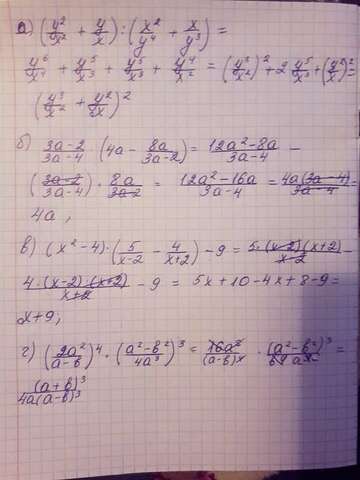 а) (y²/x² + y/x) : (x²/y⁴ + x/y³) =
y⁶/x⁴ + y⁵/x³ + y⁵/x³ + y⁴/x² = (y³/x²)² + 2 y⁵/x³ + (y²/x)² =
(y³/x² + y²/x)²
б) (3a-2)/(3a-4) · (4a - 8a/(3a-2)) = (12a²-8a)/(3a-4) -
((3a-2)/(3a-4)) · 8a/(3a-2) = (12a²-16a)/(3a-4) = 4a(3a-4)/(3a-4) =
4a ,
в) (x²-4) · (5/(x-2) - 4/(x+2)) - 9 = 5·(x-2)(x+2)/(x-2) -
4·(x-2)·(x+2)/(x+2) - 9 = 5x+10-4x+8-9=
x+9;
г) (2a²/(a-b))⁴ · ((a²-b²)/4a³)³ = 16a²/(a-b)⁴ · (a²-b²)³/64a =
(a+b)³/4a(a-b)³